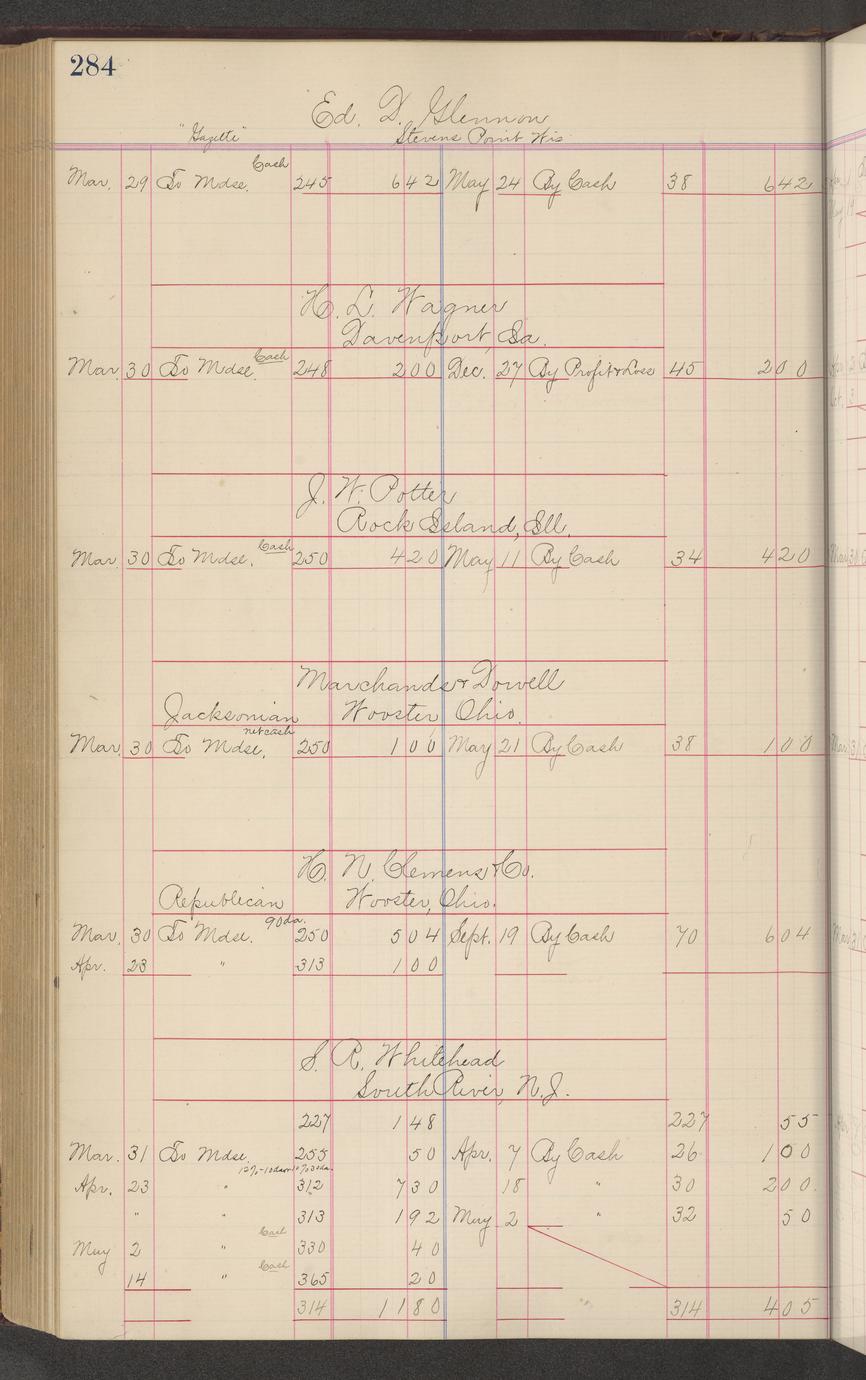 284
Ed. D. Glennon
"Gazette" Stevens Point Wis
Cash
Mar. 29 To Mdse. 245 642 May 24 By Cash 38 642
H. L. Wagner
Davenport, Ia.
Cash
Mar. 30 To Mdse. 248 200 Dec. 27 By Profit & Loss 45 200
J. W. Potter
Rock Island, Ill.
Cash
Mar. 30 To Mdse. 250 420 May 11 By Cash 34 420
Marchands & Dowell
Jacksonian Wooster Ohio.
net cash
Mar. 30 To Mdse. 250 100 May 21 By Cash 38 100
H. N. Clemens & Co.
Republican Wooster, Ohio.
90 da.
Mar. 30 To Mdse. 250 504 Sept. 19 By Cash 70 604
Apr. 23 " 313 100
S. R. Whitehead
South River, N.J.
227 148 227 55
Mar. 31 To Mdse. 255 50 Apr. 7 By Cash 26 100
Apr. 23 " 312 730 18 " 30 200
" " 313 192 May 2 " 32 50
Cash
May 2 " 330 40
Cash
14 " 365 20
314 1180 " 314 405